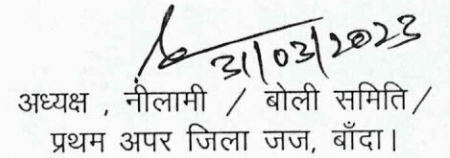 31/03/2023
अध्यक्ष , नीलामी / बोली समिति/
प्रथम अपर जिला जज, बाँदा।